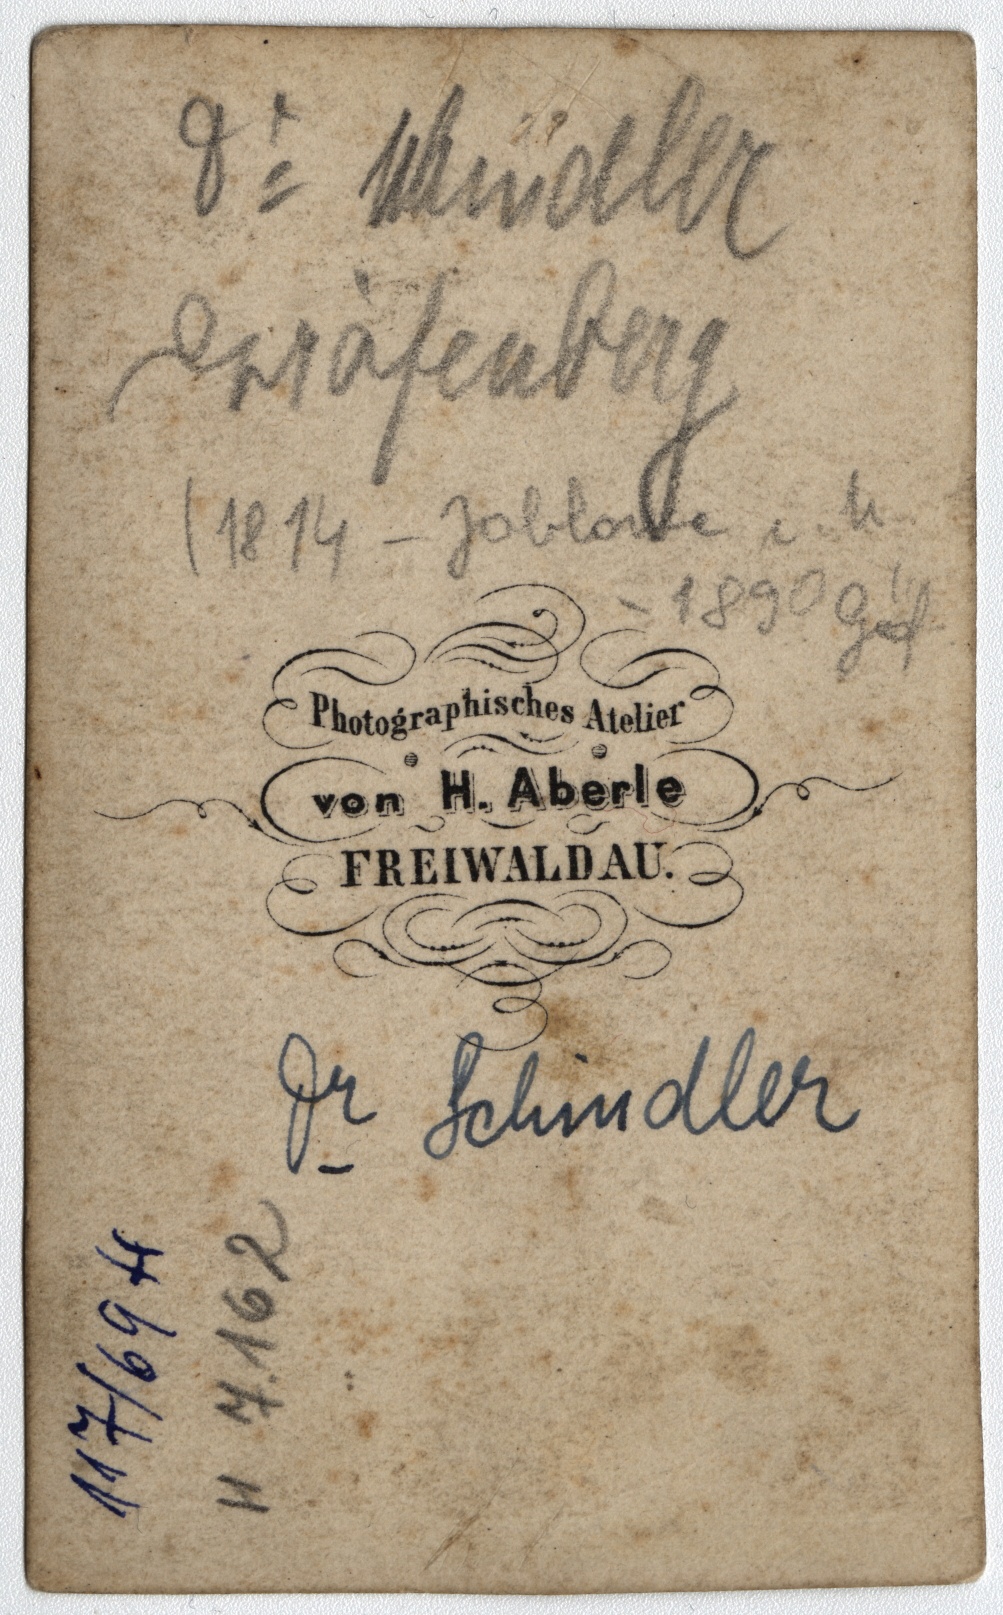 Dr. Schindler
Gräfenberg
(1814 - Jablone i. h.
- 1890 Gräf
Photographisches Atelier
von H. Aberle
FREIWALDAU.
Dr Schindler
117/69 H
H 7.162